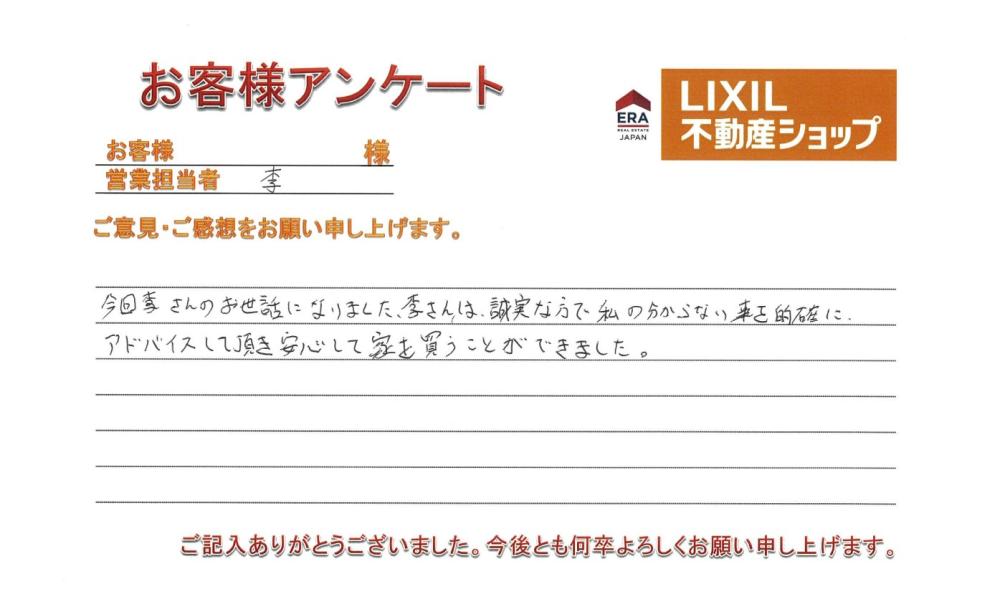 お客様アンケート
ERA
REAL ESTATE
JAPAN
LIXIL
不動産ショップ
お客様 様
営業担当者 李
ご意見・ご感想をお願い申し上げます。
今回李さんのお世話になりました、李さんは、誠実な方で私の分からない事を的確に、
アドバイスして頂き安心して家を買うことができました。
ご記入ありがとうございました。今後とも何卒よろしくお願い申し上げます。